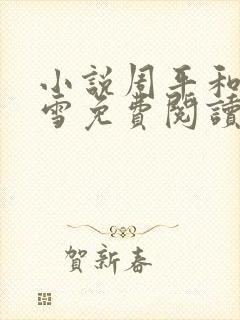 小說周平和
雪免費閱讀
賀新春